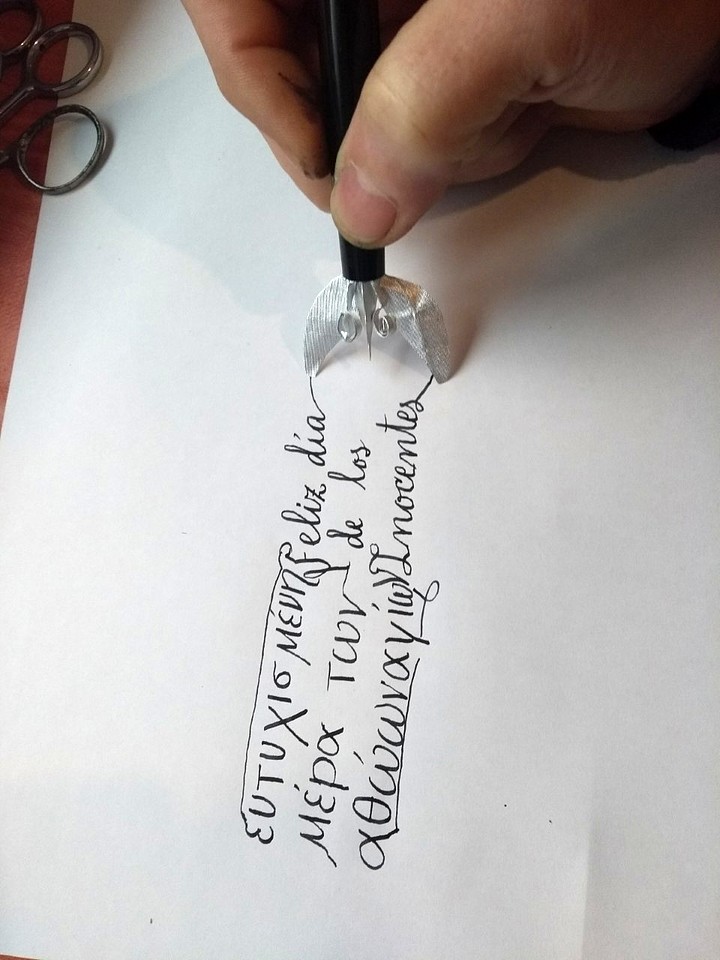 ευτυχισμένη Feliz día
μέρα των de los
αθώων αγίων Inocentes